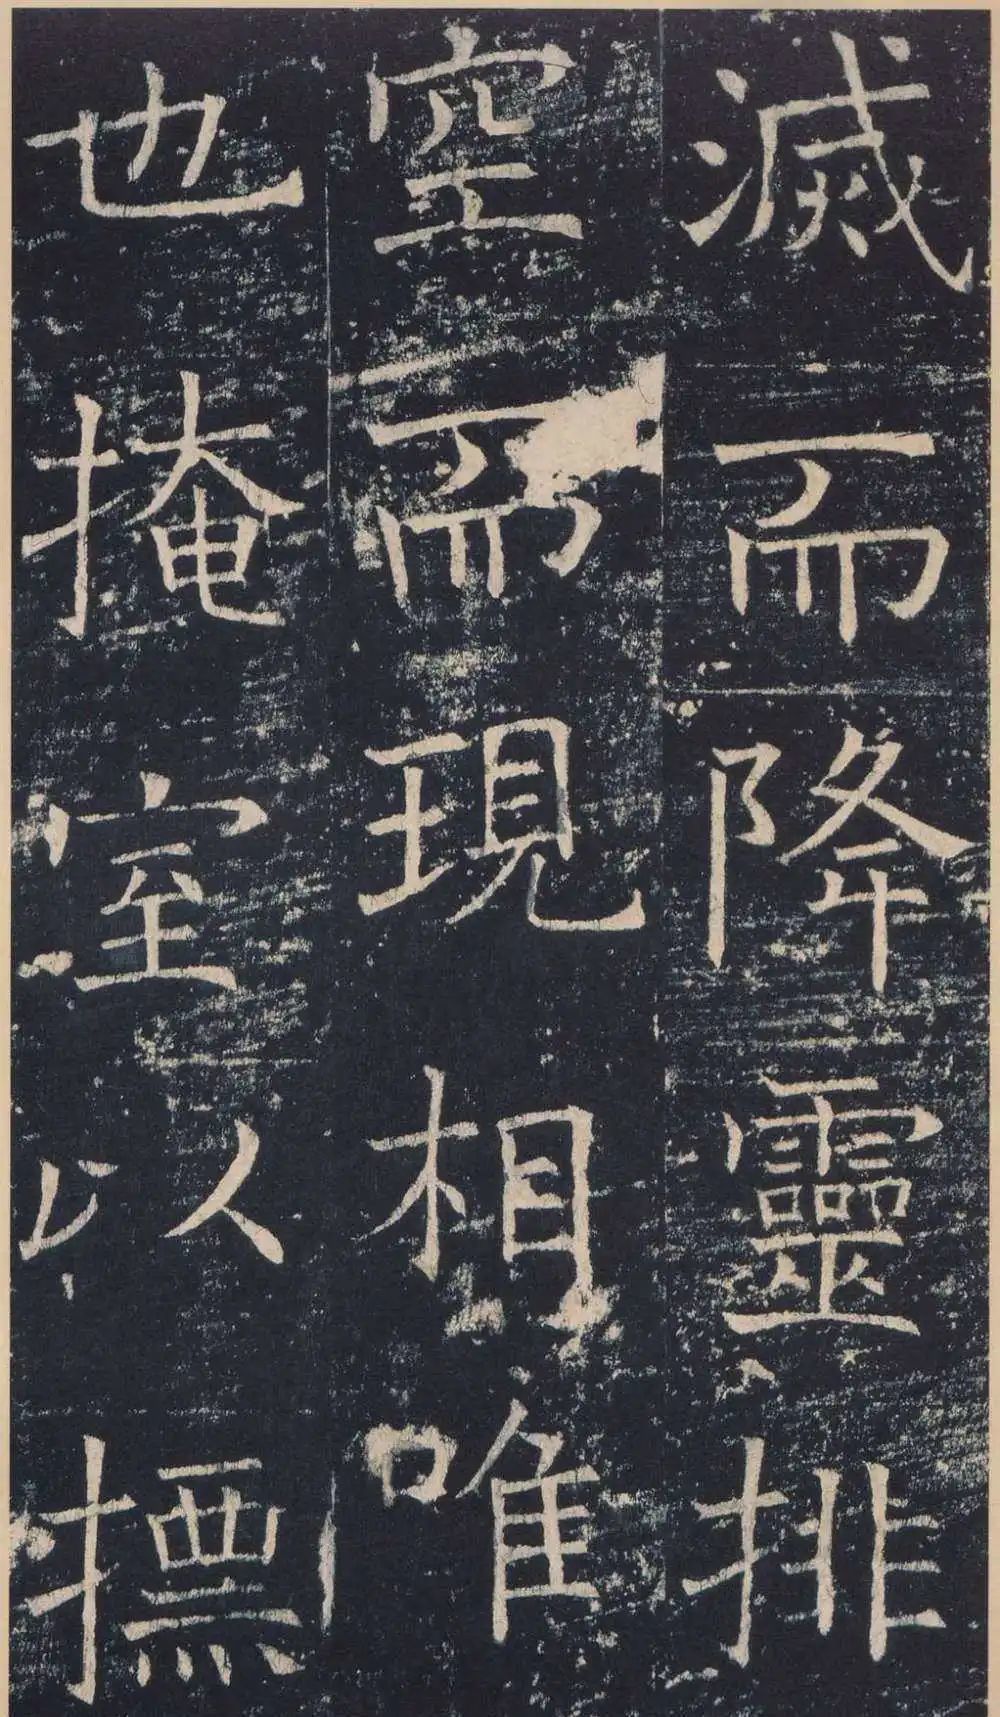 滅而降靈排
空而現相唯
也掩室以摽